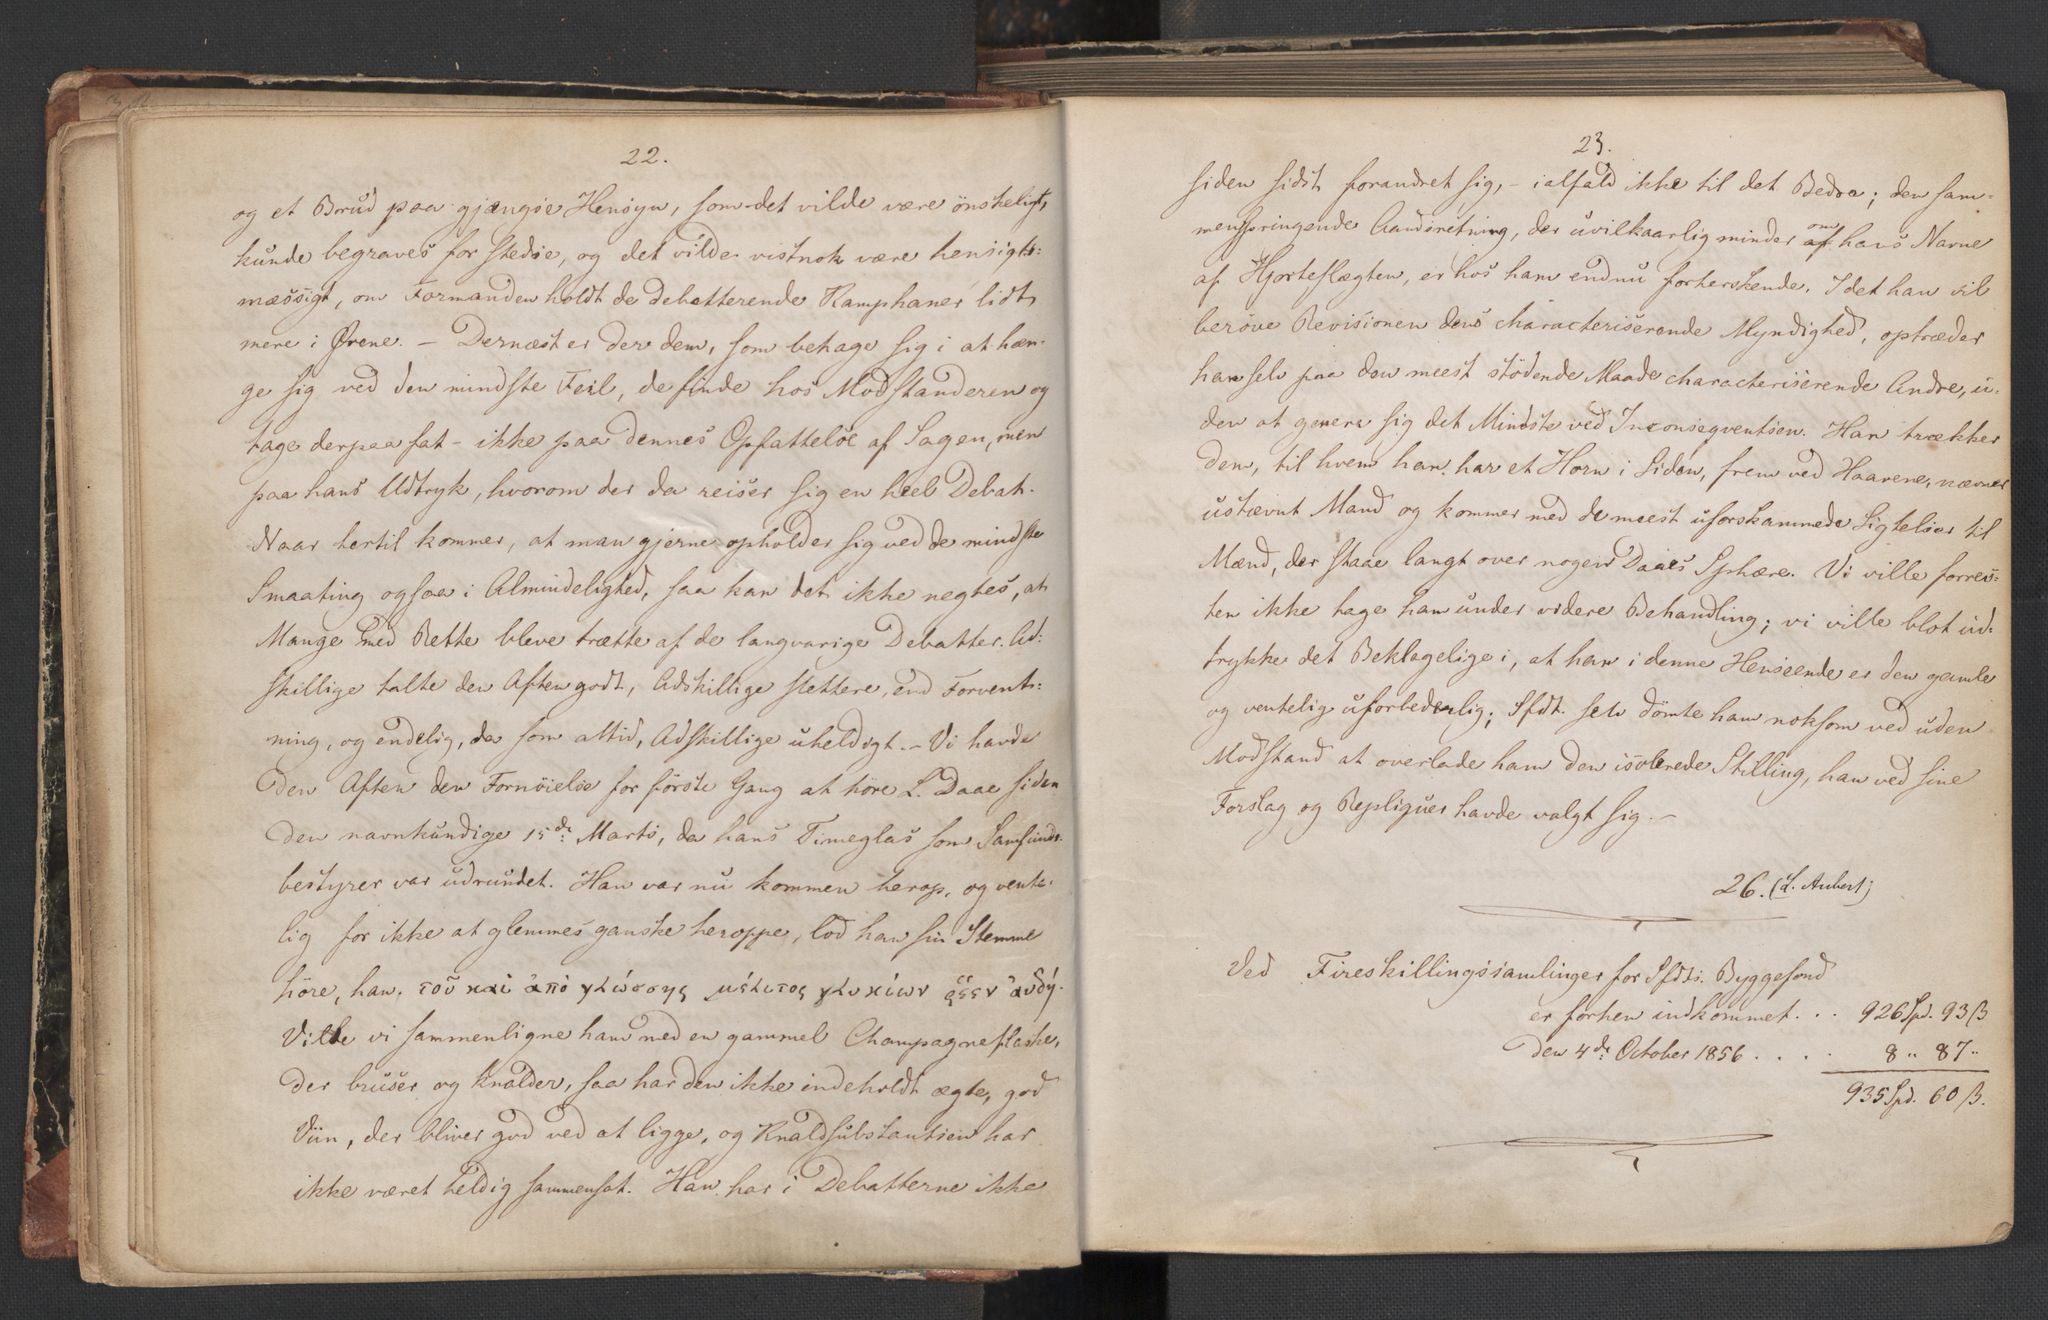 22.
og et Brud paa gjængse Hensyn, som det vilde være önskeligt,
kunde begraves for stedse, og det vilde vistnok være hensigts-
mæssigt, om Formanden holdt de debatterende Kamphaner lidt
mere i Ørene. – Dernæst er der dem, som behage sig i at hæn-
ge sig ved den mindste Feil, de finde hos Modstanderen og
tage derpaa fat – ikke paa dennes Opfattelse af Sagen, men
paa hans Udtryk, hvorom der da reiser sig en heel Debat.
Naar hertil kommer, at man gjerne opholder sig ved de mindste
Smaating ogsaa i Almindelighed, saa kan det ikke negtes, at
Mange med Rette bleve trætte af de langvarige Debatter. Ad-
skillige talte den Aften godt, Adskillige slettere, end Forvent-
ning, og endelig, da som altid, Adskillige uheldigt. – Vi havde
den Aften den Fornöielse for förste Gang at höre L. Daae siden
den navnkundige 15de Marts, da hans Timeglas som Samfunds-
bestyrer var udrundet. Han var nu kommen herop, og vente-
lig for ikke at glemmes ganske heroppe, lod han sin Stemme
höre, han, τοῦ καὶ ἀπὸ γλώσσης μέλιτος γλυκίων ῥέεν αὐδή.
Ville vi sammenligne ham med en gammel Champagneflaske,
der bruser og knalder, saa har den ikke indeholdt ægte, god
Viin, der bliver god ved at ligge, og Knaldsubstantsen har
ikke været heldig sammensat. Han har i Debatterne ikke
23.
siden sidst forandret sig, – ialfald ikke til det Bedre; den sam-
menspringende Aandsretning, der uvilkaarlig minder om hans Navne
af Hjorteslægten, er hos ham endnu forherskende. Idet han vil
beröve Revisionen dens characteriserende Myndighed, optræder
han selv paa den meest stödende Maade characteriserende Andre, u-
den at genere sig det Mindste ved Inconseqventsen. Han trækker
dem, til hvem han har et Horn i Siden, frem ved Haarene, nævner
ustævnt Mand og kommer med de meest uforskammede Sigtelser til
Mænd, der staae langt over nogen Daaes Sphære. Vi ville forres-
ten ikke tage ham under videre Behandling; vi ville blot ud-
trykke det Beklagelige i, at han i denne Henseende er den gamle
og ventelig uforbederlig; Sfdt. selv dömte ham noksom ved uden
Modstand at overlade ham den isolerede Stilling, han ved sine
Forslag og Repliquer havde valgt sig. –
26. (L. Aubert)
Ved Fireskillingssamlinger for Sfdts. Byggefond
er forhen indkommet . . 926 Spd. 93 ß
den 4de October 1856 . . . . 8 " 87 "
935 Spd. 60 ß.